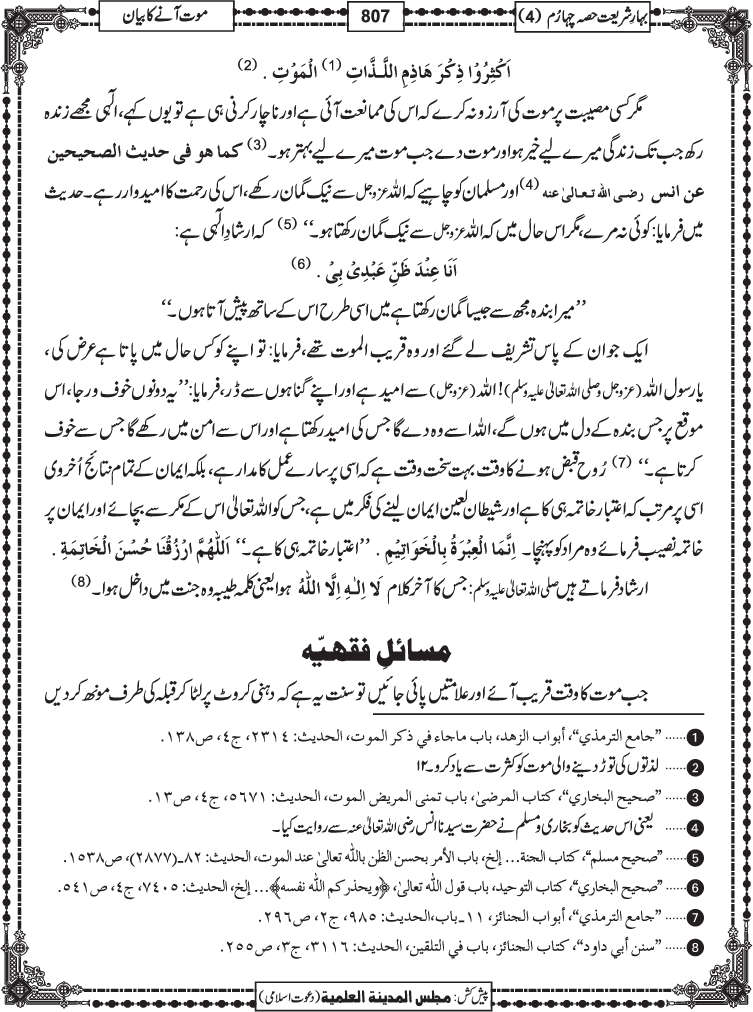 بہارِ شریعت حصہ چہارم (4)
807
موت آنے کا بیان
اَکْثِرُوْا ذِکْرَ ھَاذِمِ اللَّذَّاتِ (1) الْمَوْتِ . (2)
مگر کسی مصیبت پر موت کی آرزو نہ کرے کہ اس کی ممانعت آئی ہے اور ناچار کرنی ہی ہے تو یوں کہے، الٰہی مجھے زندہ
رکھ جب تک زندگی میرے لیے خیر ہو اور موت دے جب موت میرے لیے بہتر ہو۔ (3) کما ھو فی حدیث الصحیحین
عن انس رضی اللہ تعالیٰ عنہ (4) اور مسلمان کو چاہیے کہ اللہ عزوجل سے نیک گمان رکھے، اس کی رحمت کا امیدوار رہے۔ حدیث
میں فرمایا: کوئی نہ مرے، مگر اس حال میں کہ اللہ عزوجل سے نیک گمان رکھتا ہو۔‘‘ (5) کہ ارشادِ الٰہی ہے:
اَنَا عِنْدَ ظَنِّ عَبْدِیْ بِیْ . (6)
’’میرا بندہ مجھ سے جیسا گمان رکھتا ہے میں اسی طرح اس کے ساتھ پیش آتا ہوں۔‘‘
ایک جوان کے پاس تشریف لے گئے اور وہ قریب الموت تھے، فرمایا: تو اپنے کو کس حال میں پاتا ہے عرض کی،
یا رسول اللہ (عزوجل وصلی اللہ تعالیٰ علیہ وسلم)! اللہ (عزوجل) سے امید ہے اور اپنے گناہوں سے ڈر، فرمایا: ’’یہ دونوں خوف و رجا، اس
موقع پر جس بندہ کے دل میں ہوں گے، اللہ اسے وہ دے گا جس کی امید رکھتا ہے اور اس سے امن میں رکھے گا جس سے خوف
کرتا ہے۔‘‘ (7) رُوح قبض ہونے کا وقت بہت سخت وقت ہے کہ اسی پر سارے عمل کا مدار ہے، بلکہ ایمان کے تمام نتائج اُخروی
اسی پر مرتب کہ اعتبار خاتمہ ہی کا ہے اور شیطان لعین ایمان لینے کی فکر میں ہے، جس کو اللہ تعالیٰ اس کے مکر سے بچائے اور ایمان پر
خاتمہ نصیب فرمائے وہ مراد کو پہنچا۔ اِنَّمَا الْعِبْرَۃُ بِالْخَوَاتِیْمِ . ’’اعتبار خاتمہ ہی کا ہے۔‘‘ اَللّٰھُمَّ ارْزُقْنَا حُسْنَ الْخَاتِمَۃِ .
ارشاد فرماتے ہیں صلی اللہ تعالیٰ علیہ وسلم: جس کا آخر کلام لَا اِلٰـہَ اِلَّا اللّٰہُ ہوا یعنی کلمہ طیبہ وہ جنت میں داخل ہوا۔ (8)
مسائلِ فقہیّہ
جب موت کا وقت قریب آئے اور علامتیں پائی جائیں تو سنت یہ ہے کہ دہنی کروٹ پر لٹا کر قبلہ کی طرف مونھ کر دیں
1 ...... ”جامع الترمذي“، أبواب الزھد، باب ماجاء في ذکر الموت، الحدیث: ٢٣١٤، ج٤، ص١٣٨.
2 ...... لذتوں کی توڑ دینے والی موت کو کثرت سے یاد کرو۔ ١٢
3 ...... ”صحیح البخاري“، کتاب المرضیٰ، باب تمنی المریض الموت، الحدیث: ٥٦٧١، ج٤، ص١٣.
4 ...... یعنی اس حدیث کو بخاری ومسلم نے حضرت سیدنا انس رضی اللہ تعالیٰ عنہ سے روایت کیا۔
5 ...... ”صحیح مسلم“، کتاب الجنة... إلخ، باب الأمر بحسن الظن باللّٰہ تعالیٰ عند الموت، الحدیث: ٨٢ـ(٢٨٧٧)، ص١٥٣٨.
6 ...... ”صحیح البخاري“، کتاب التوحید، باب قول اللّٰہ تعالیٰ، ﴿ویحذرکم اللّٰہ نفسہ﴾... إلخ، الحدیث: ٧٤٠٥، ج٤، ص٥٤١.
7 ...... ”جامع الترمذي“، أبواب الجنائز، ١١ ـ باب، الحدیث: ٩٨٥، ج٢، ص٢٩٦.
8 ...... ”سنن أبي داود“، کتاب الجنائز، باب في التلقین، الحدیث: ٣١١٦، ج٣، ص٢٥٥.
پیش کش: مجلس المدینة العلمیة (دعوتِ اسلامی)